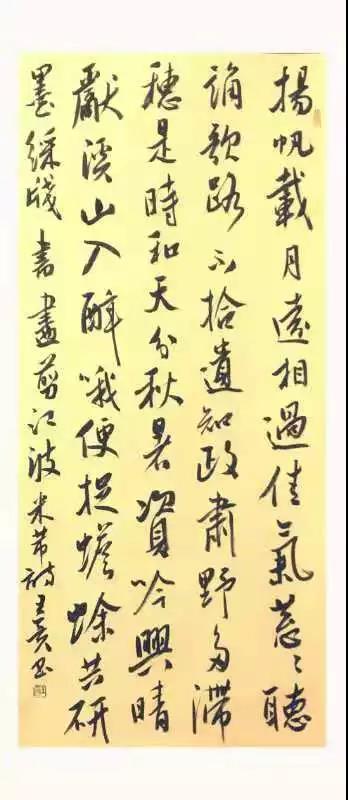 揚帆載月遠相過佳氣葱〻聽
誦歌路不拾遺知政肅野多滯
穗是時和天分秋暑資吟興晴
獻溪山入醉哦便捉蟾蜍共研
墨綵牋書盡剪江波 米芾詩 王书